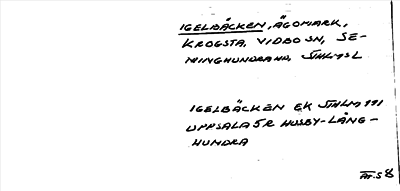 IGELBÄCKEN, ÄGOMARK,
KROGSTA, VIDBO SN, SE-
MINGHUNDRA HD, STHLMS L
IGELBÄCKEN EK STHLM 111
UPPSALA 5 R HUSBY-LÅNG-
HUNDRA
ÄT. S 8